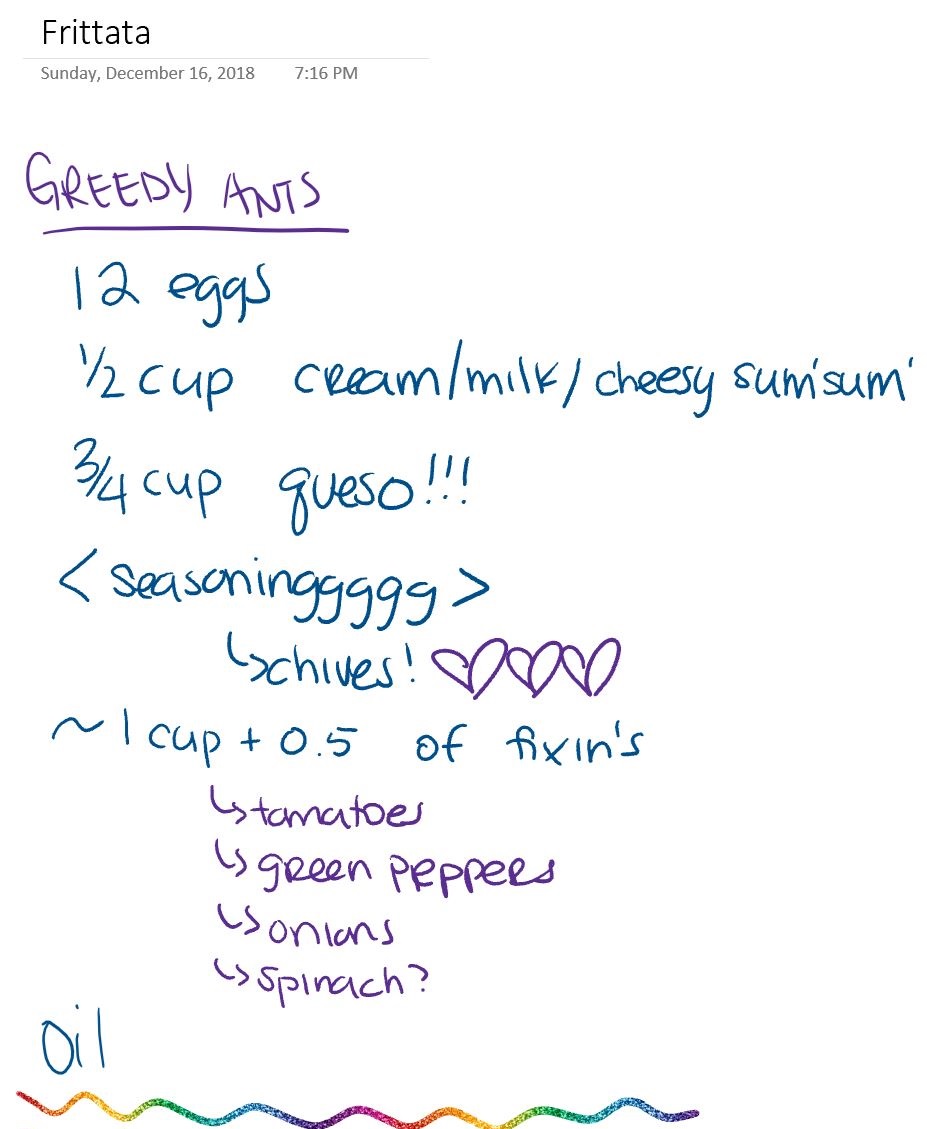 Frittata
Sunday, December 16, 2018 7:16 PM
GREEDY ANTS
12 eggs
1/2 cup cream/milk/cheesy sum'sum'
3/4 cup queso!!!
<seasoninggggg>
↳chives! ♡♡♡
~1 cup + 0.5 of fixin's
↳tomatoes
↳green peppers
↳onions
↳spinach?
oil